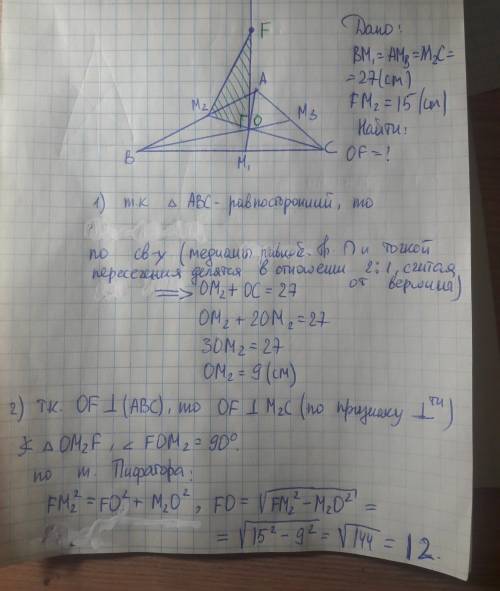 F
A
M₂
M₃
O
B
M₁
C
Дано:
BM₁=AM₃=M₂C=
=27(см)
FM₂=15(см)
Найти:
OF=?
1) т.к △ABC-равносторонний, то
по св-у (медианы равноб. тр. ∩ и точкой
пересечения делятся в отношении 2:1, считая
от вершины)
⟹ OM₂+OC=27
OM₂+2OM₂=27
3OM₂=27
OM₂=9(см)
2) т.к. OF⊥(ABC), то OF⊥M₂C (по признаку ⊥ᵗⁱ)
△OM₂F, ∠FOM₂=90°.
по т. Пифагора:
FM₂²=FO²+M₂O², FO=√FM₂²-M₂O² =
=√15²-9² =√144 =12.